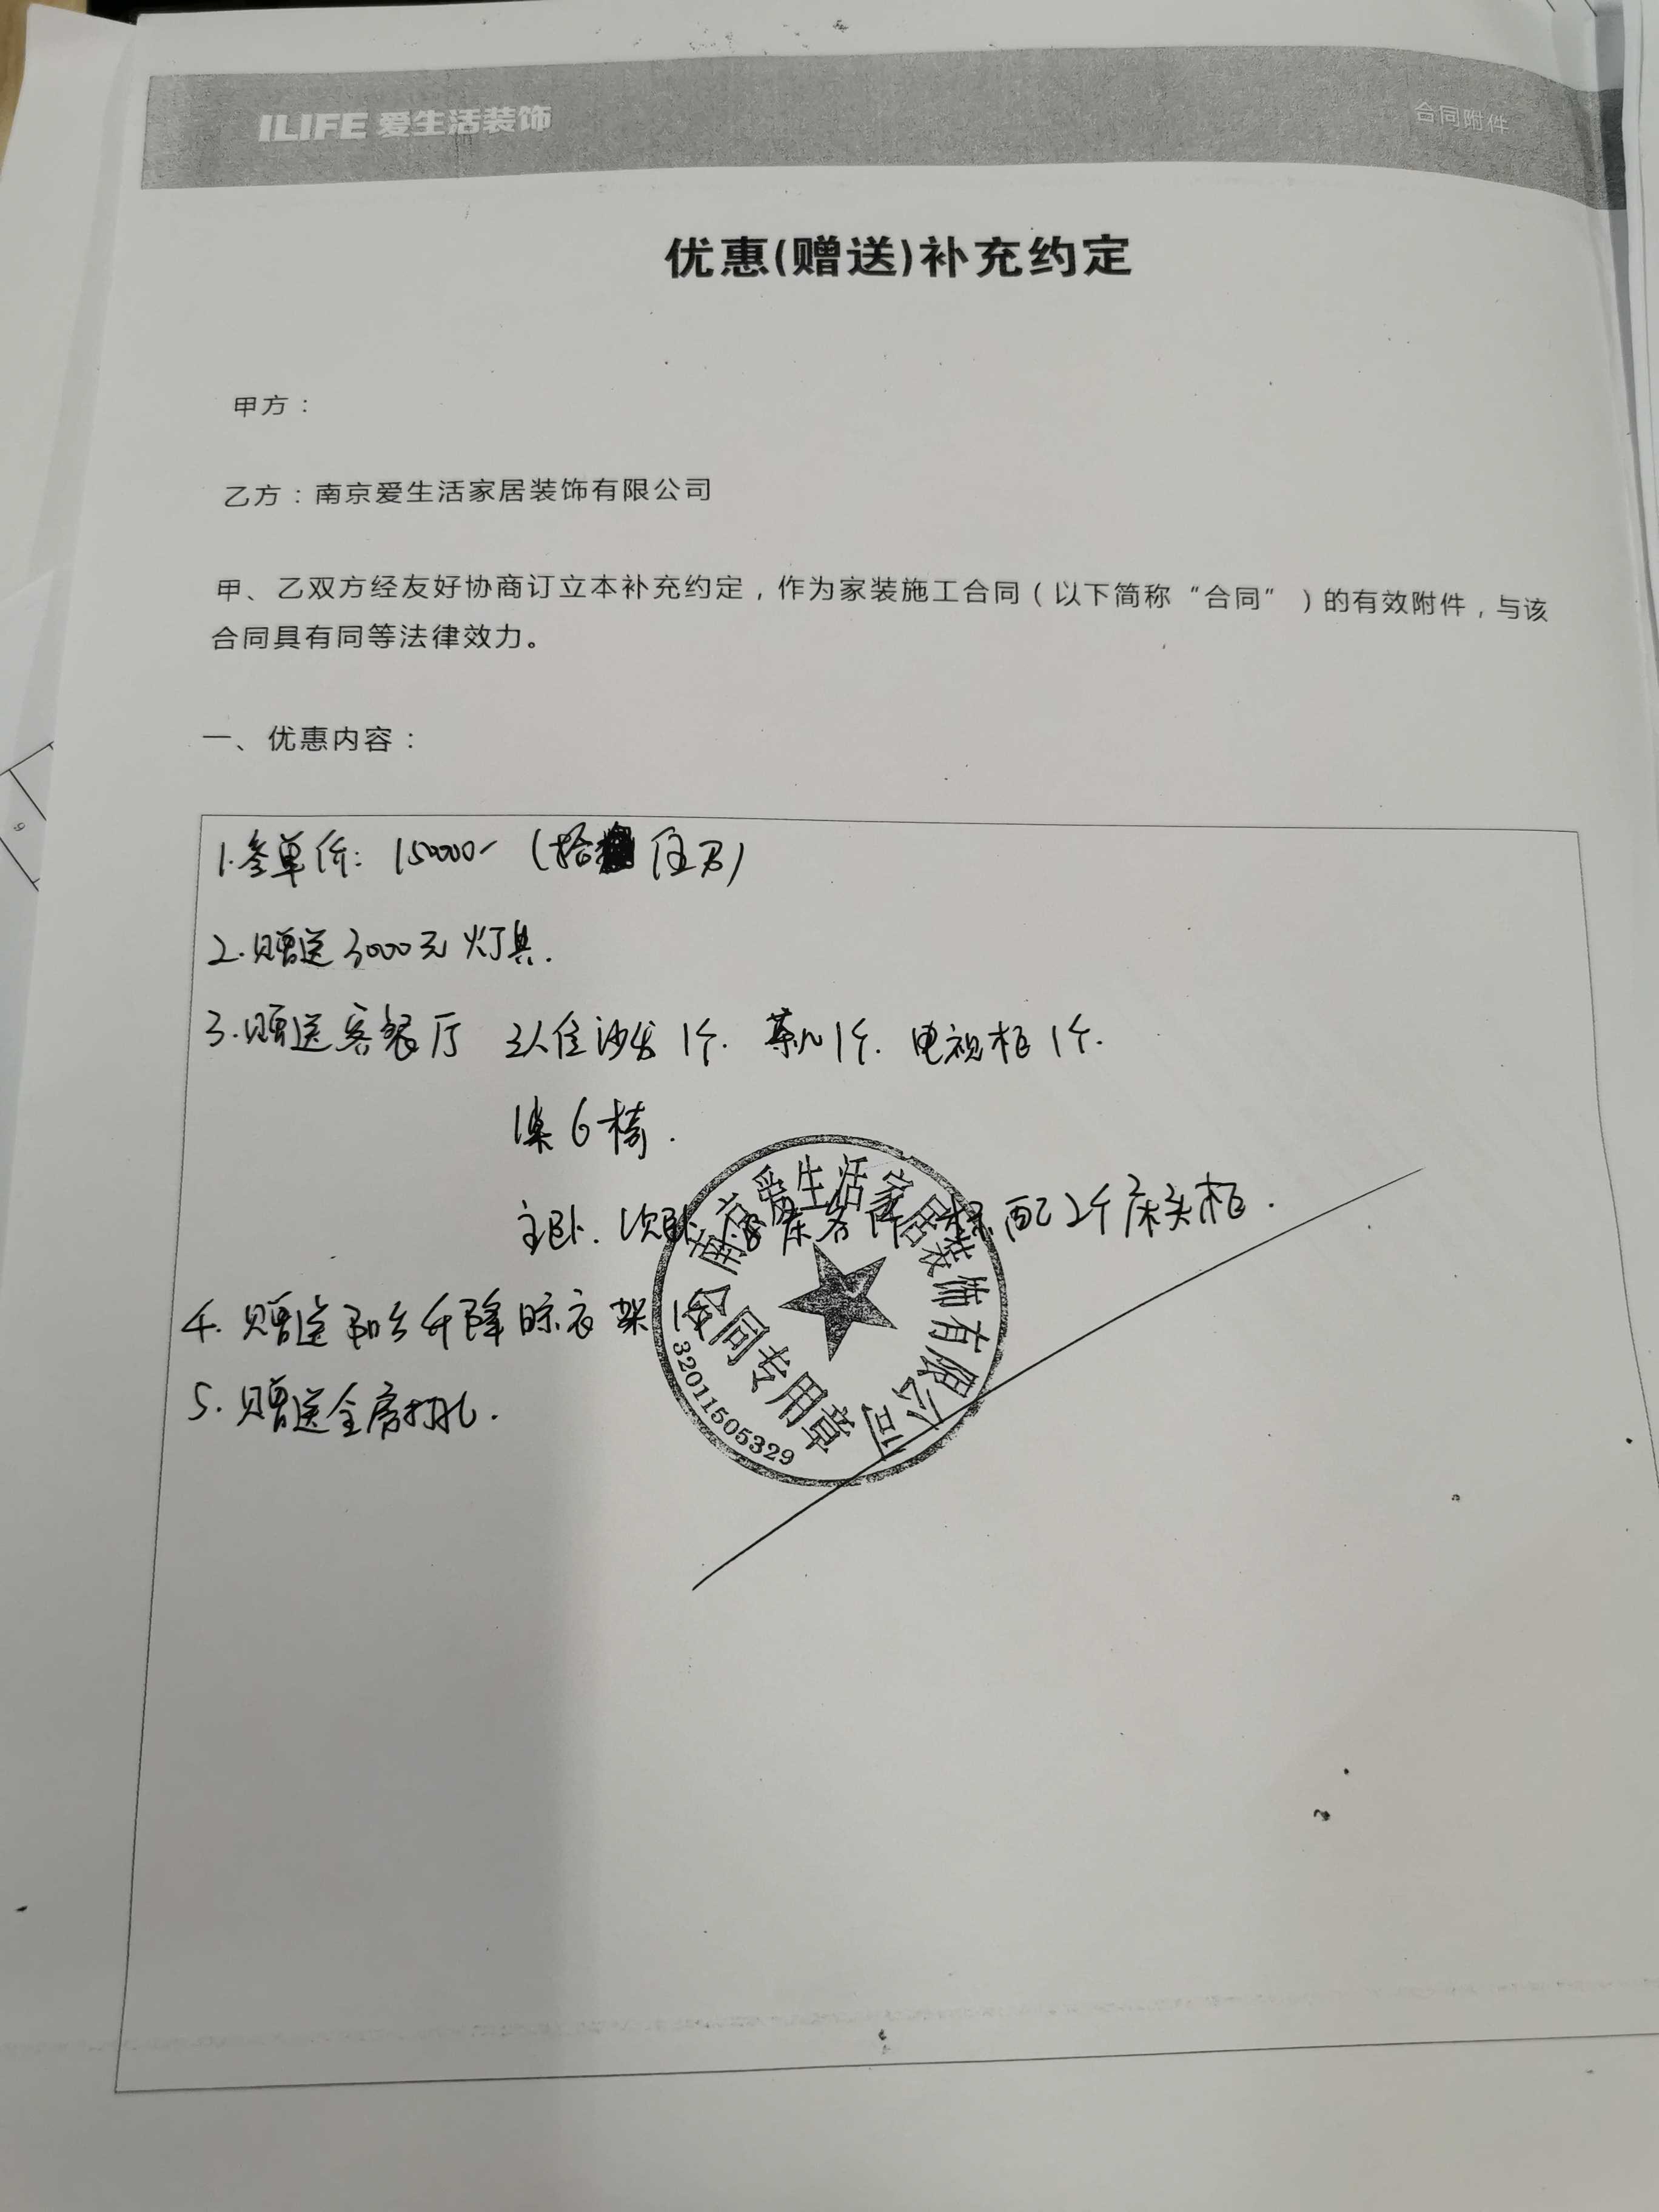 ILIFE 爱生活装饰
合同附件
优惠(赠送)补充约定
甲方：
乙方：南京爱生活家居装饰有限公司
甲、乙双方经友好协商订立本补充约定，作为家装施工合同（以下简称“合同”）的有效附件，与该
合同具有同等法律效力。
一、优惠内容：
1.签单价：150000- (拾伍万)
2.赠送3000元灯具.
3.赠送客餐厅 3人位沙发1个. 茶几1个. 电视柜1个.
1桌6椅.
主卧. 次卧 床各1个 标配2个床头柜.
4.赠送阳台升降晾衣架1个
5.赠送全房打孔.
南京爱生活家居装饰有限公司
合同专用章
32011505329
9